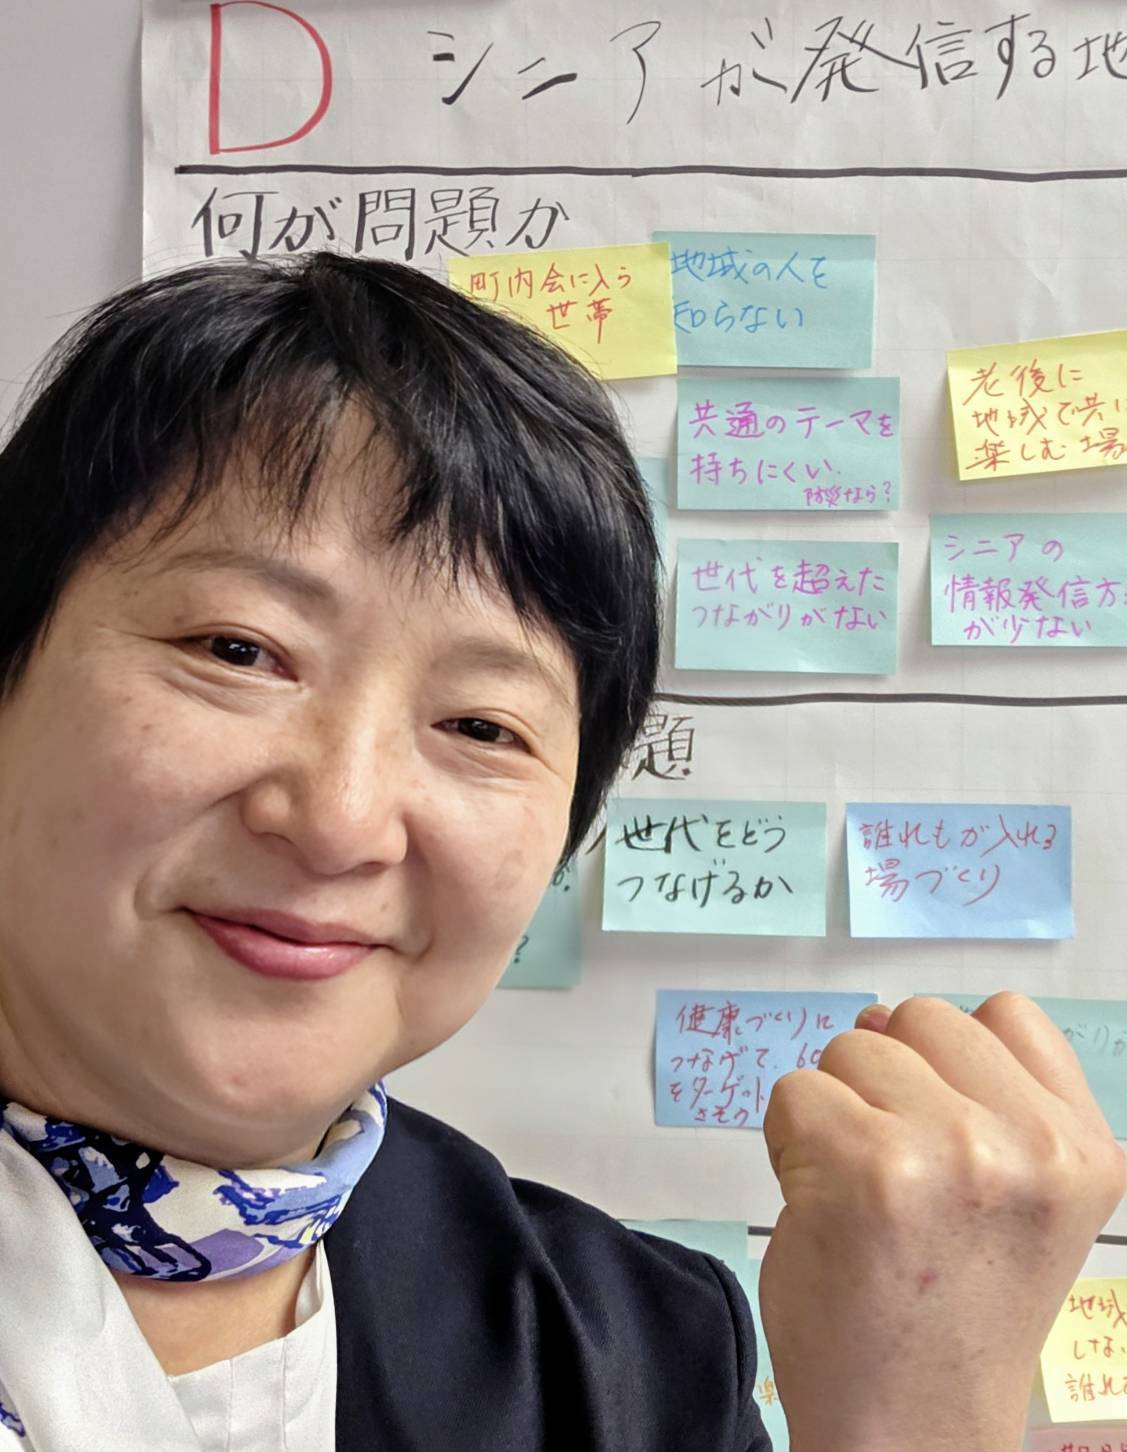 D シニアが発信する地
何が問題か
町内会に入ら
世帯
地域の人を
知らない
共通のテーマを
持ちにくい.
防災なら?
老後に
地域で共に
楽しむ場
世代を超えた
つながりがない
シニアの
情報発信方
が少ない
題
世代をどう
つなげるか
?
誰れもが入れる
場づくり
健康づくりに
つなげて、60
をターゲット
さそう
がりか
地域
しな
誰れ